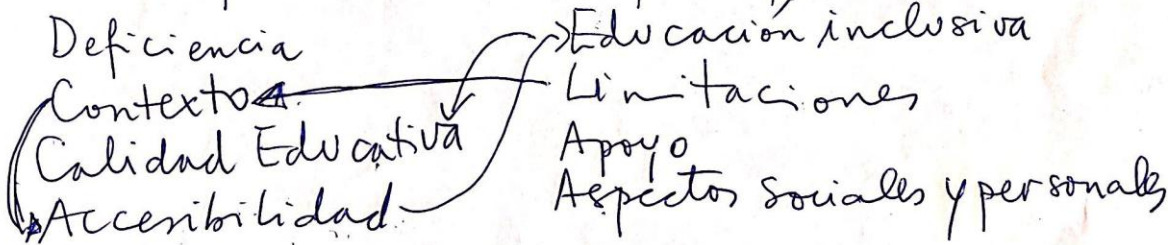 Deficiencia
Contexto
Calidad Educativa
Accesibilidad
Educación inclusiva
Limitaciones
Apoyo
Aspectos sociales y personales